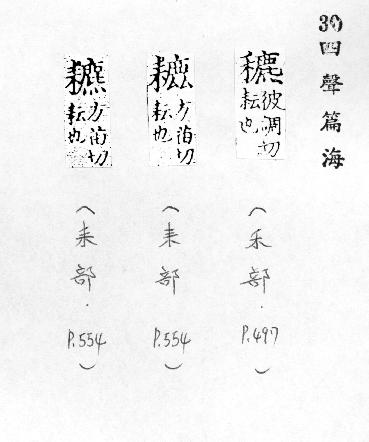 30四聲篇海
穮彼調切耘也
(禾部.P.497)
方苗切耘也
(耒部.P.554)
方苗切耘也
(耒部.P.554)